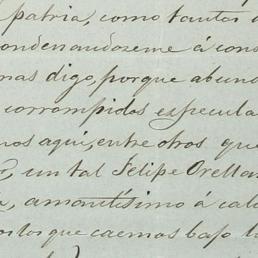 patria, como tantos
condenandoseme á cons
mas digo, porque abund
corrompidos especula
mos aqui, entre otros que
un tal Felipe Orella
amantisimo á
que caemos bajo